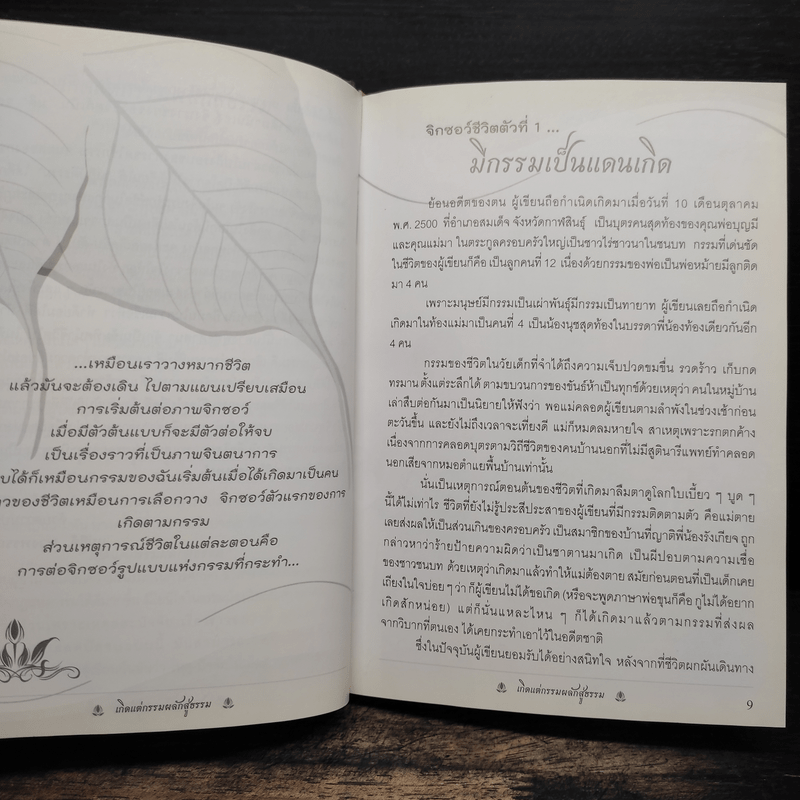 ...เหมือนเราวางหมากชีวิต
แล้วมันจะต้องเดิน ไปตามแผนเปรียบเสมือน
การเริ่มต้นต่อภาพจิกซอว์
เมื่อมีตัวต้นแบบก็จะมีตัวต่อให้จบ
เป็นเรื่องราวที่เป็นภาพจินตนาการ
บได้ก็เหมือนกรรมของฉันเริ่มต้นเมื่อได้เกิดมาเป็นคน
าวของชีวิตเหมือนการเลือกวาง จิกซอว์ตัวแรกของการ
เกิดตามกรรม
ส่วนเหตุการณ์ชีวิตในแต่ละตอนคือ
การต่อจิกซอว์รูปแบบแห่งกรรมที่กระทำ...
เกิดแต่กรรมผลักสู่ธรรม
จิกซอว์ชีวิตตัวที่ 1 ...
มีกรรมเป็นแดนเกิด
ย้อนอดีตของตน ผู้เขียนถือกำเนิดเกิดมาเมื่อวันที่ 10 เดือนตุลาคม
พ.ศ. 2500 ที่อำเภอสมเด็จ จังหวัดกาฬสินธุ์ เป็นบุตรคนสุดท้องของคุณพ่อบุญมี
และคุณแม่มา ในตระกูลครอบครัวใหญ่เป็นชาวไร่ชาวนาในชนบท กรรมที่เด่นชัด
ในชีวิตของผู้เขียนก็คือ เป็นลูกคนที่ 12 เนื่องด้วยกรรมของพ่อเป็นพ่อหม้ายมีลูกติด
มา 4 คน
เพราะมนุษย์มีกรรมเป็นเผ่าพันธุ์มีกรรมเป็นทายาท ผู้เขียนเลยถือกำเนิด
เกิดมาในท้องแม่มาเป็นคนที่ 4 เป็นน้องนุชสุดท้องในบรรดาพี่น้องท้องเดียวกันอีก
4 คน
กรรมของชีวิตในวัยเด็กที่จำได้ถึงความเจ็บปวดขมขื่น รวดร้าว เก็บกด
ทรมาน ตั้งแต่ระลึกได้ ตามขบวนการของขันธ์ห้าเป็นทุกข์ด้วยเหตุว่า คนในหมู่บ้าน
เล่าสืบต่อกันมาเป็นนิยายให้ฟังว่า พอแม่คลอดผู้เขียนตามลำพังในช่วงเช้าก่อน
ตะวันขึ้น และยังไม่ถึงเวลาจะเที่ยงดี แม่ก็หมดลมหายใจ สาเหตุเพราะรกตกค้าง
เนื่องจากการคลอดบุตรตามวิถีชีวิตของคนบ้านนอกที่ไม่มีสูตินารีแพทย์ทำคลอด
นอกเสียจากหมอตำแยพื้นบ้านเท่านั้น
นั่นเป็นเหตุการณ์ตอนต้นของชีวิตที่เกิดมาลืมตาดูโลกใบเบี้ยว ๆ บูด ๆ
นี้ได้ไม่เท่าไร ชีวิตที่ยังไม่รู้ประสีประสาของผู้เขียนที่มีกรรมติดตามตัว คือแม่ตาย
เลยส่งผลให้เป็นส่วนเกินของครอบครัว เป็นสมาชิกของบ้านที่ญาติพี่น้องรังเกียจ ถูก
กล่าวหาว่าร้ายป้ายความผิดว่าเป็นซาตานมาเกิด เป็นผีปอบตามความเชื่อ
ของชาวชนบท ด้วยเหตุว่าเกิดมาแล้วทำให้แม่ต้องตาย สมัยก่อนตอนที่เป็นเด็กเคย
เถียงในใจบ่อย ๆ ว่า ก็ผู้เขียนไม่ได้ขอเกิด (หรือจะพูดภาษาพ่อขุนก็คือ กูไม่ได้อยาก
เกิดสักหน่อย) แต่ก็นั่นแหละไหน ๆ ก็ได้เกิดมาแล้วตามกรรมที่ส่งผล
จากวิบากที่ตนเอง ได้เคยกระทำเอาไว้ในอดีตชาติ
ซึ่งในปัจจุบันผู้เขียนยอมรับได้อย่างสนิทใจ หลังจากที่ชีวิตผกผันเดินทาง
เกิดแต่กรรมผลักสู่ธรรม
9